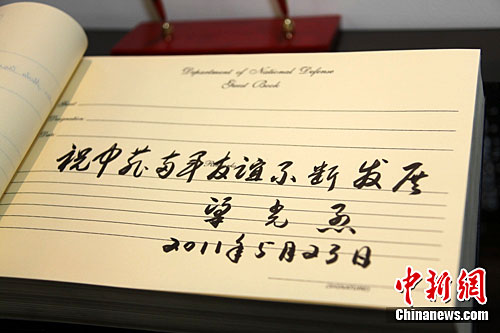 Department of National Defense
Guest Book
Designation:
祝中菲两军友谊不断发展
梁光烈
2011年5月23日
(SIGNATURE)
中新网
Chinanews.com